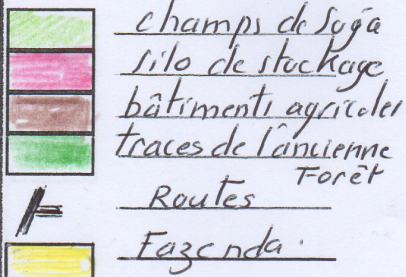 champs de soja
silo de stockage
bâtiments agricoles
traces de l'ancienne
Forêt
Routes
Fazenda.